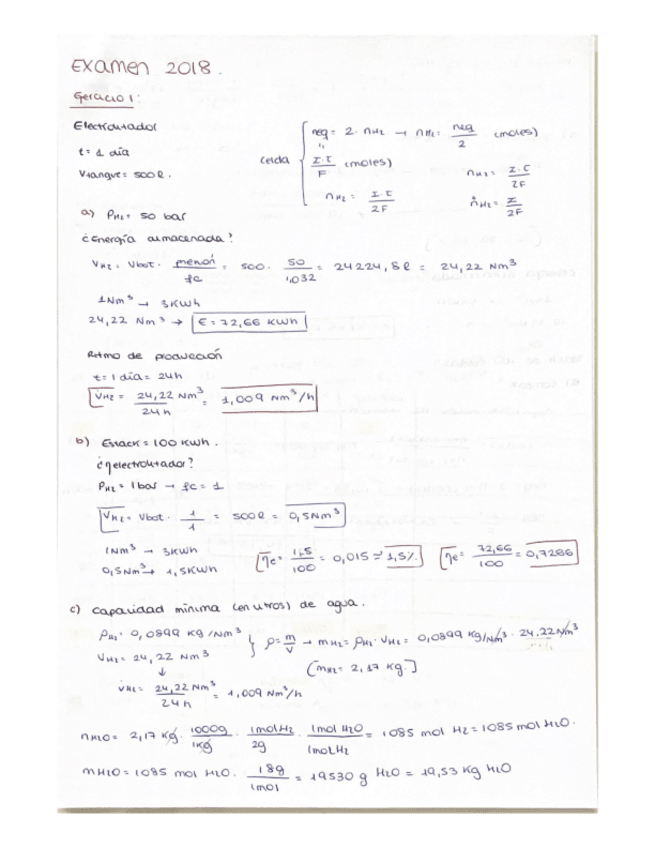 Examen 2018.
Ejercicio 1:
Electrolizador
t = 1 día
Vtanque = 500 l.
Celda
neq = 2 · nH2 → nH2 = neq/2 (moles)
I·t/F (moles)
nH2 = I·t/2F
nH2 = I·t/2F
ṅH2 = I/2F
a) PH2 = 50 bar
¿Energía almacenada?
VH2 = Vbot · /fc = 500 · 50/1,032 = 24224,8 l = 24,22 Nm³
1Nm³ → 3KWh
24,22 Nm³ → E = 72,66 KWh
Ritmo de producción
t = 1 día = 24h
V̇H2 = 24,22 Nm³/24h = 1,009 Nm³/h
b) Estack = 100 KWh.
¿ηelectrolizador?
PH2 = 1bar → fc = 1
VH2 = Vbot · 1/1 = 500 l = 0,5 Nm³
1Nm³ → 3KWh
0,5Nm³ → 1,5KWh
ηe = 1,5/100 = 0,015 ≈ 1,5%.
ηe = 72,66/100 = 0,7266
c) Capacidad mínima (en litros) de agua.
ρH2 = 0,0899 Kg/Nm³
VH2 = 24,22 Nm³
ρ = m/V → mH2 = ρH2 · VH2 = 0,0899 Kg/Nm³ · 24,22Nm³
(mH2 = 2,17 Kg.)
↓
V̇H2 = 24,22 Nm³/24h = 1,009 Nm³/h
nH2O = 2,17 Kg · 1000g/1Kg · 1molH2/2g · 1mol H2O/1molH2 = 1085 mol H2 = 1085 mol H2O.
mH2O = 1085 mol H2O · 18g/1mol = 19530 g H2O = 19,53 Kg H2O